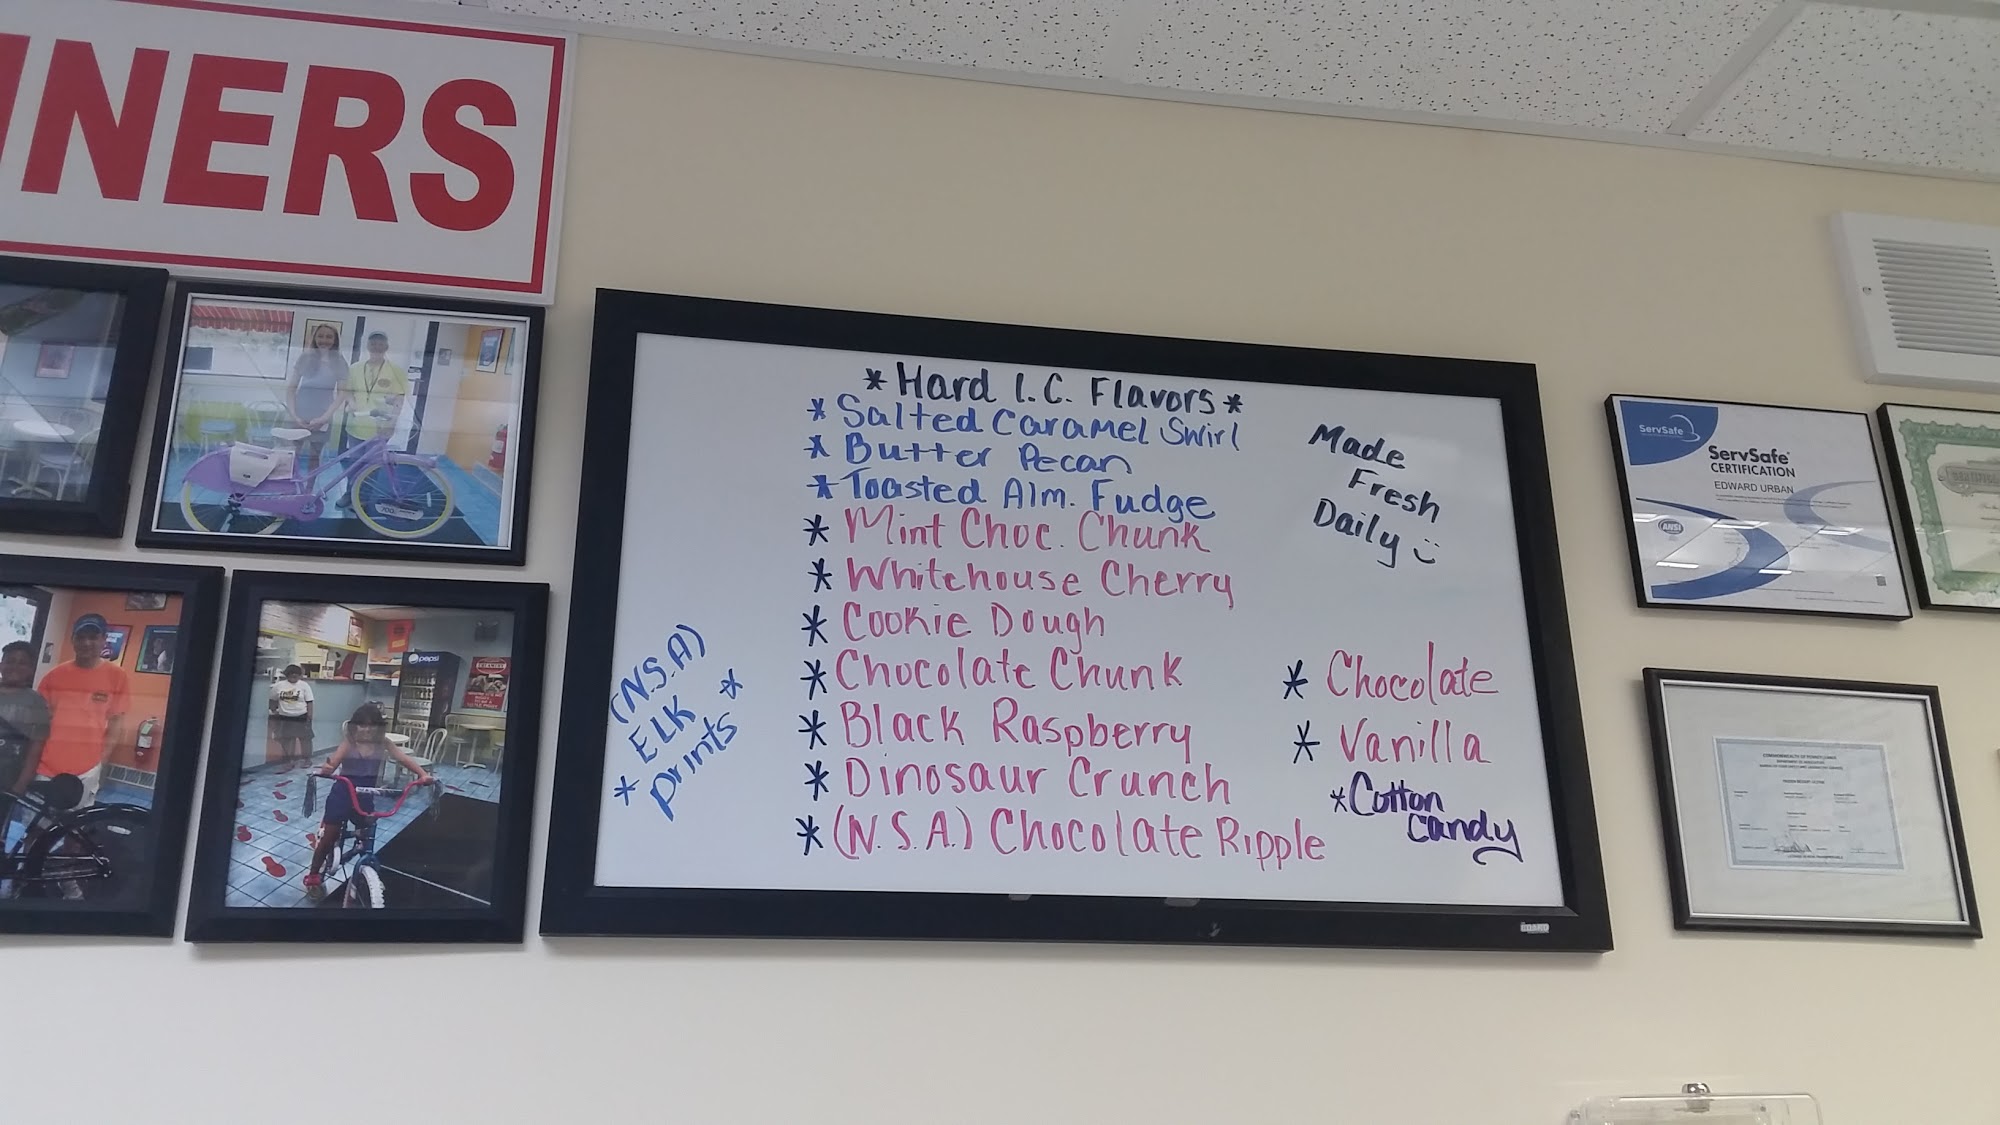 NERS
* Hard I.C. Flavors *
* Salted Caramel Swirl
* Butter Pecan
* Toasted Alm. Fudge
* Mint Choc. Chunk
* Whitehouse Cherry
* Cookie Dough
* Chocolate Chunk
* Black Raspberry
* Dinosaur Crunch
* (N.S.A.) Chocolate Ripple
(N.S.A)
* ELK *
prints
Made
Fresh
Daily
* Chocolate
* Vanilla
* Cotton
Candy
ServSafe
ServSafe
CERTIFICATION
EDWARD URBAN
ANSI
pepsi
BOARD
COMMONWEALTH OF PENNSYLVANIA